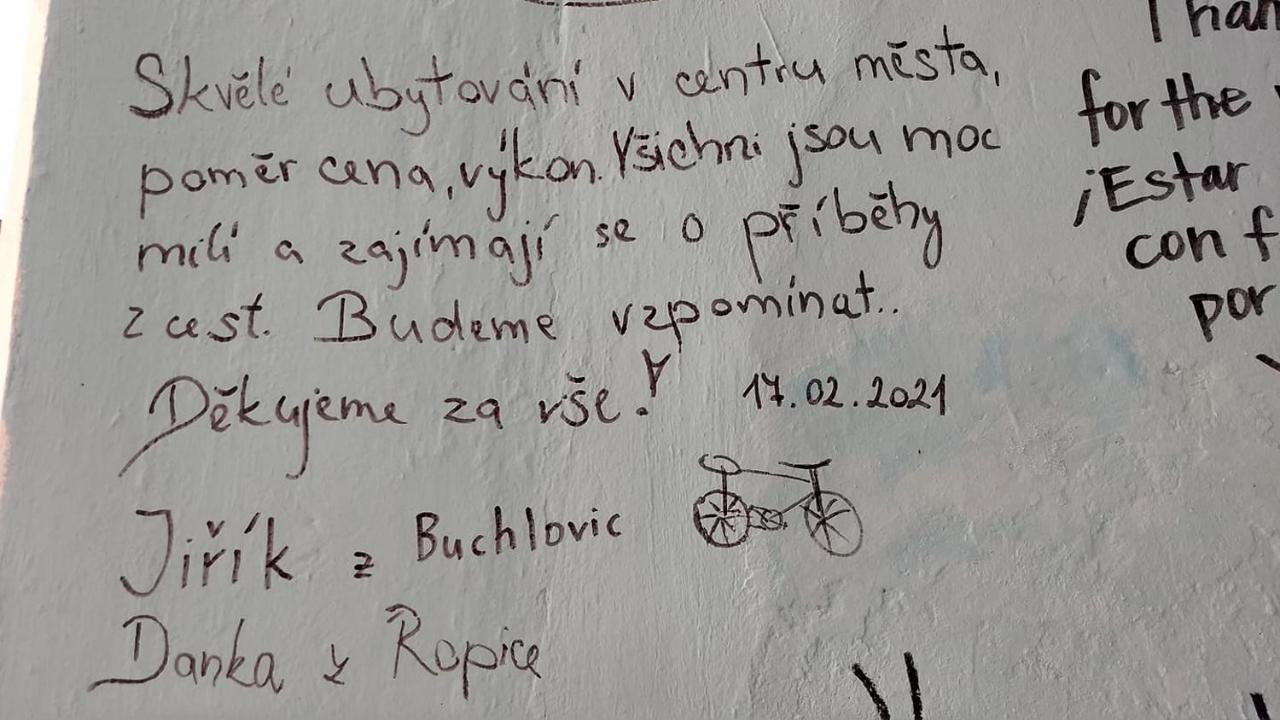 Skvělé ubytování v centru města,
poměr cena, výkon. Všichni jsou moc
milí a zajímají se o příběhy
z cest. Budeme vzpomínat..
Děkujeme za vše!
17.02.2021
Jiřík z Buchlovic
Danka z Řopice
Than
for the
¡Estar
con f
por